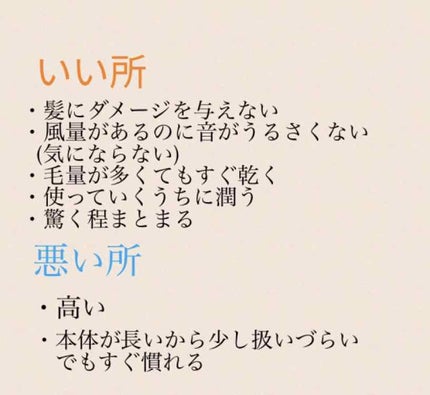 いい所
・髪にダメージを与えない
・風量があるのに音がうるさくない
(気にならない)
・毛量が多くてもすぐ乾く
・使っていくうちに潤う
・驚く程まとまる
悪い所
・高い
・本体が長いから少し扱いづらい
でもすぐ慣れる